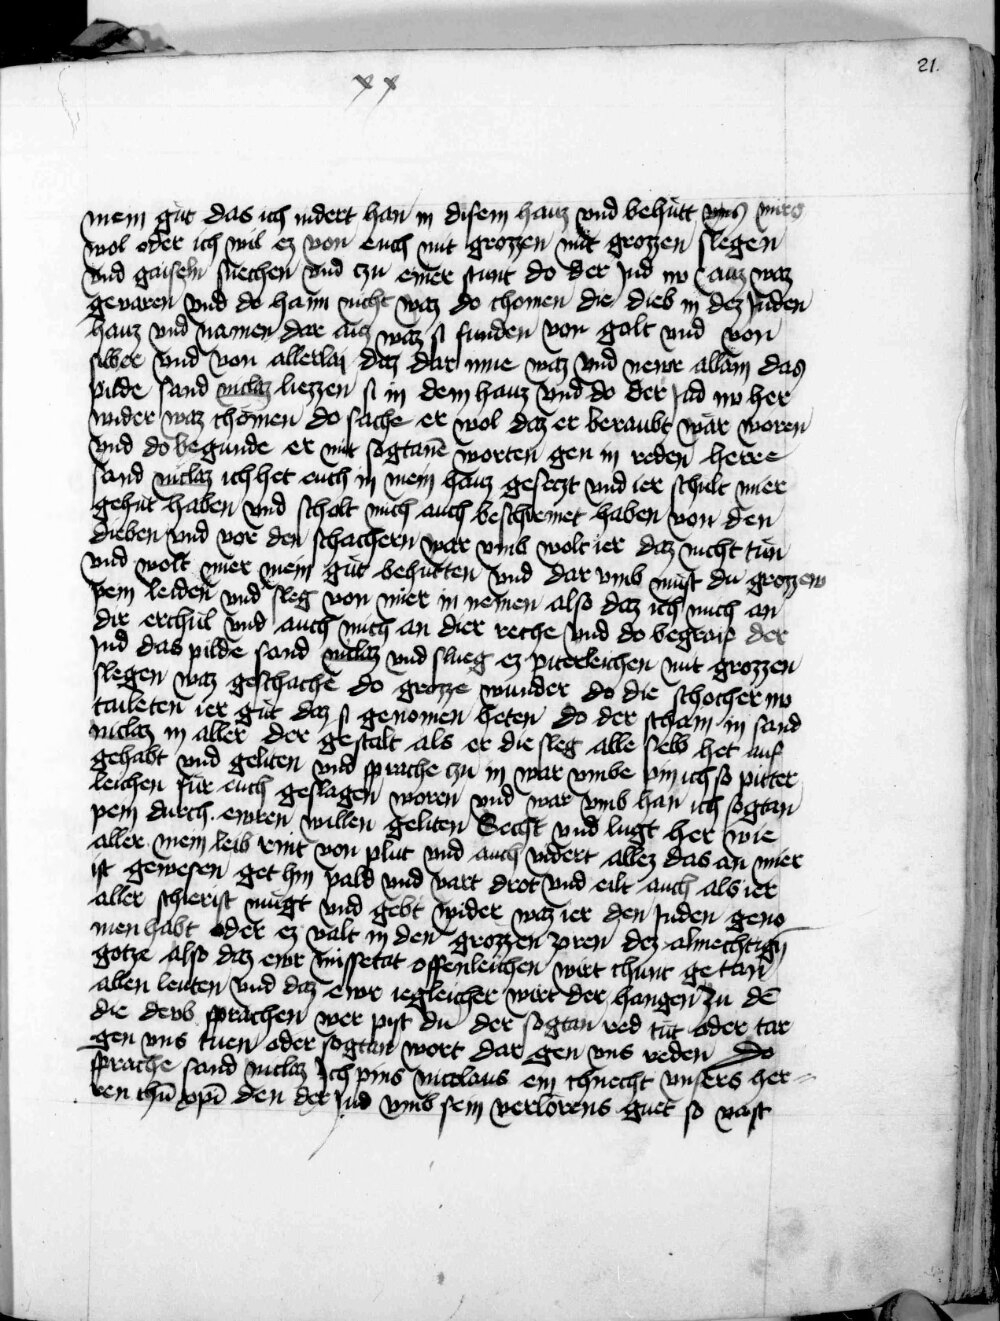 21.
xx
mein güt das ich indert han in disem hauz vnd behütt mirs
wol oder ich wil ez von euch mit grozzen mit grozzen slegen
vnd gaiseln suechen vnd czu einer stunt do der Jud no auz waz
gevaren vnd do haim nicht waz do chomen die dieb in dez Juden
hauz vnd namen dar auz waz si funden von golt vnd von
silber vnd von allerlaj daz dar inne waz vnd newr allain das
pilde sand niclaz liezzen si in dem hauz vnd do der Jud no her
wider waz chomen do sache er wol daz er beraubt wär woren
vnd do begunde er mit sogtanē worten gen in reden herre
sand niclaz ich het euch in mein hauz gesetzt vnd ier schult mier
gehüt haben vnd scholt mich auch beschiemet haben von den
dieben vnd vor den schachern war vmb wolt ier daz nicht tün
vnd wolt mier mein güt behütten vnd dar vmb müst du grozzew
pein leiden vnd sleg von mier in nemen also daz ich mich an
dir erchül vnd auch mich an dier reche vnd do begraif der
Jud das pilde sand niclaz vnd slueg ez piterleichen mit grozzen
slegen waz geschache do grozze wunder do die schocher no
taileten ier güt daz si genomen heten do der schain in sand
niclaz in aller der gestalt als er die sleg alle selb het auf
gehabt vnd geliten vnd sprache czu in war vmbe pin ich so pitter
leichen für euch geslagen woren vnd war vmb han ich sogtan
pein durch ewren willen geliten Secht vnd lugt her wie
aller mein leib rint von plut vnd auch vidert allez das an mier
ist gewesen get hin pald vnd vart drot vnd eilt auch als ier
aller schierist mügt vnd gebt wider waz ier den Juden geno
men habt oder ez valt in den grozzen zoren dez almechtigñ
gotze also daz ewr missetat offenleichen wirt chunt ge tan
allen leuten vnd daz ewr iegleicher wirt der hangen Zu dē
die deyb sprachen wer pist du der sogtan red tüt oder tar
gen vns tuen oder sogtan wort dar gen vns reden Do
sprache sand niclaz Ich pins nicolaus ein chnecht vnsers her=
ren ihū xpī den der Jud vmb sein verlorens guet so vast